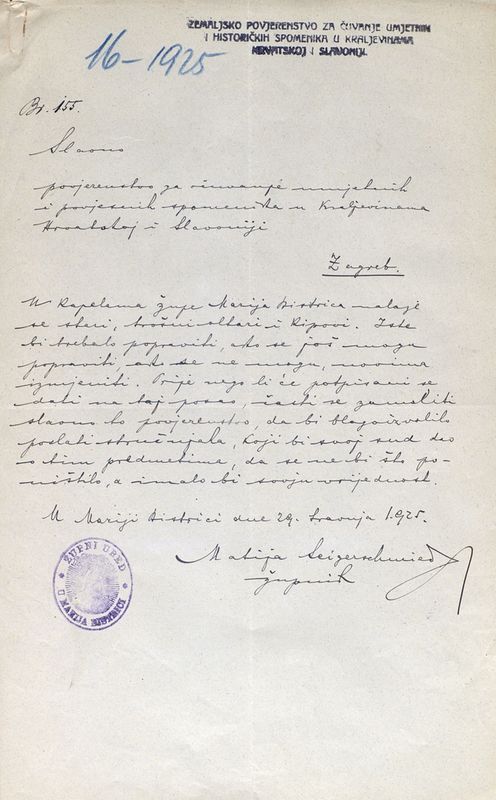 ZEMALJSKO POVJERENSTVO ZA ČUVANJE UMJETNIH
I HISTORIČKIH SPOMENIKA U KRALJEVINAMA
HRVATSKOJ I SLAVONIJI.
16-1925
Br. 155.
Slavno
povjerenstvo za očuvanje umjetnih
i povjesnih spomenika u Kraljevinama
Hrvatskoj i Slavoniji
Zagreb.
U kapelama župe Marija Bistrica nalaze
se stari, trošni oltari i kipovi. Iste
bi trebalo popraviti, ako se još mogu
popraviti, ako se ne mogu, novima
izmjeniti. Prije nego li će potpisani se
dati na taj posao, časti se zamoliti
slavno to povjerenstvo, da bi blagoizvolilo
poslati stručnjaka, koji bi svoj sud dao
o tim predmetima, da se ne bi što po-
ništilo, a imalo bi svoju vrijednost.
U Mariji Bistrici dne 29. travnja 1925.
Matija Leigerschmied
župnik
ŽUPNI URED
U MARIJI BISTRICI